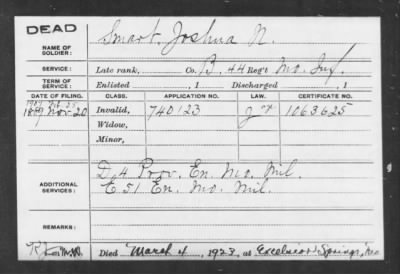 DEAD
NAME OF SOLDIER: Smart, Joshua N.
SERVICE: Late rank, Co. B, 44 Reg't Mo. Inf.
TERM OF SERVICE: Enlisted , 1 Discharged , 1
DATE OF FILING. CLASS. APPLICATION NO. LAW. CERTIFICATE NO.
Nov-20 Invalid, 740123 1063625
Widow,
Minor,
ADDITIONAL SERVICES: D. 4 Prov. En. Mo. Mil.
E 51 En. Mo. Mil.
REMARKS:
Died March 4, 1923, at Excelsior Springs, Mo